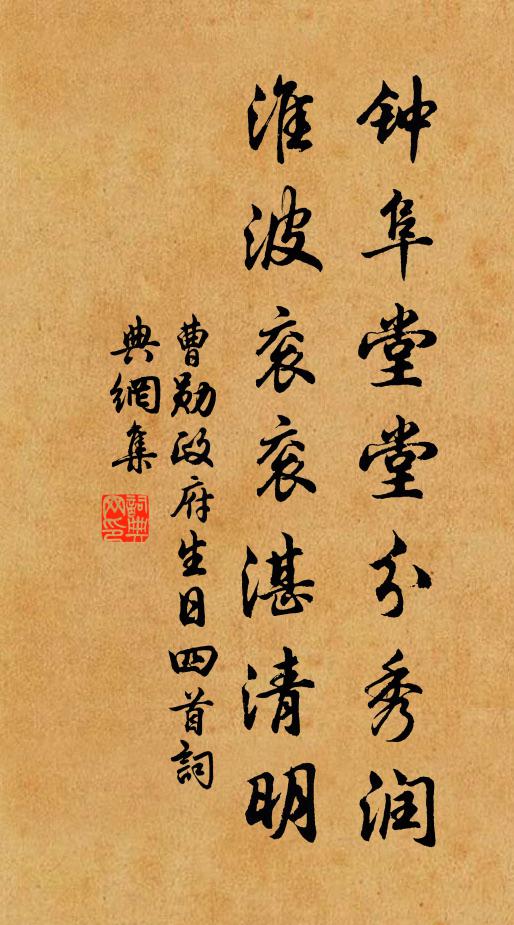 钟阜堂堂分秀润
淮波衮衮湛清明
曹勋政府生日四首詞
典網集
詞典網印